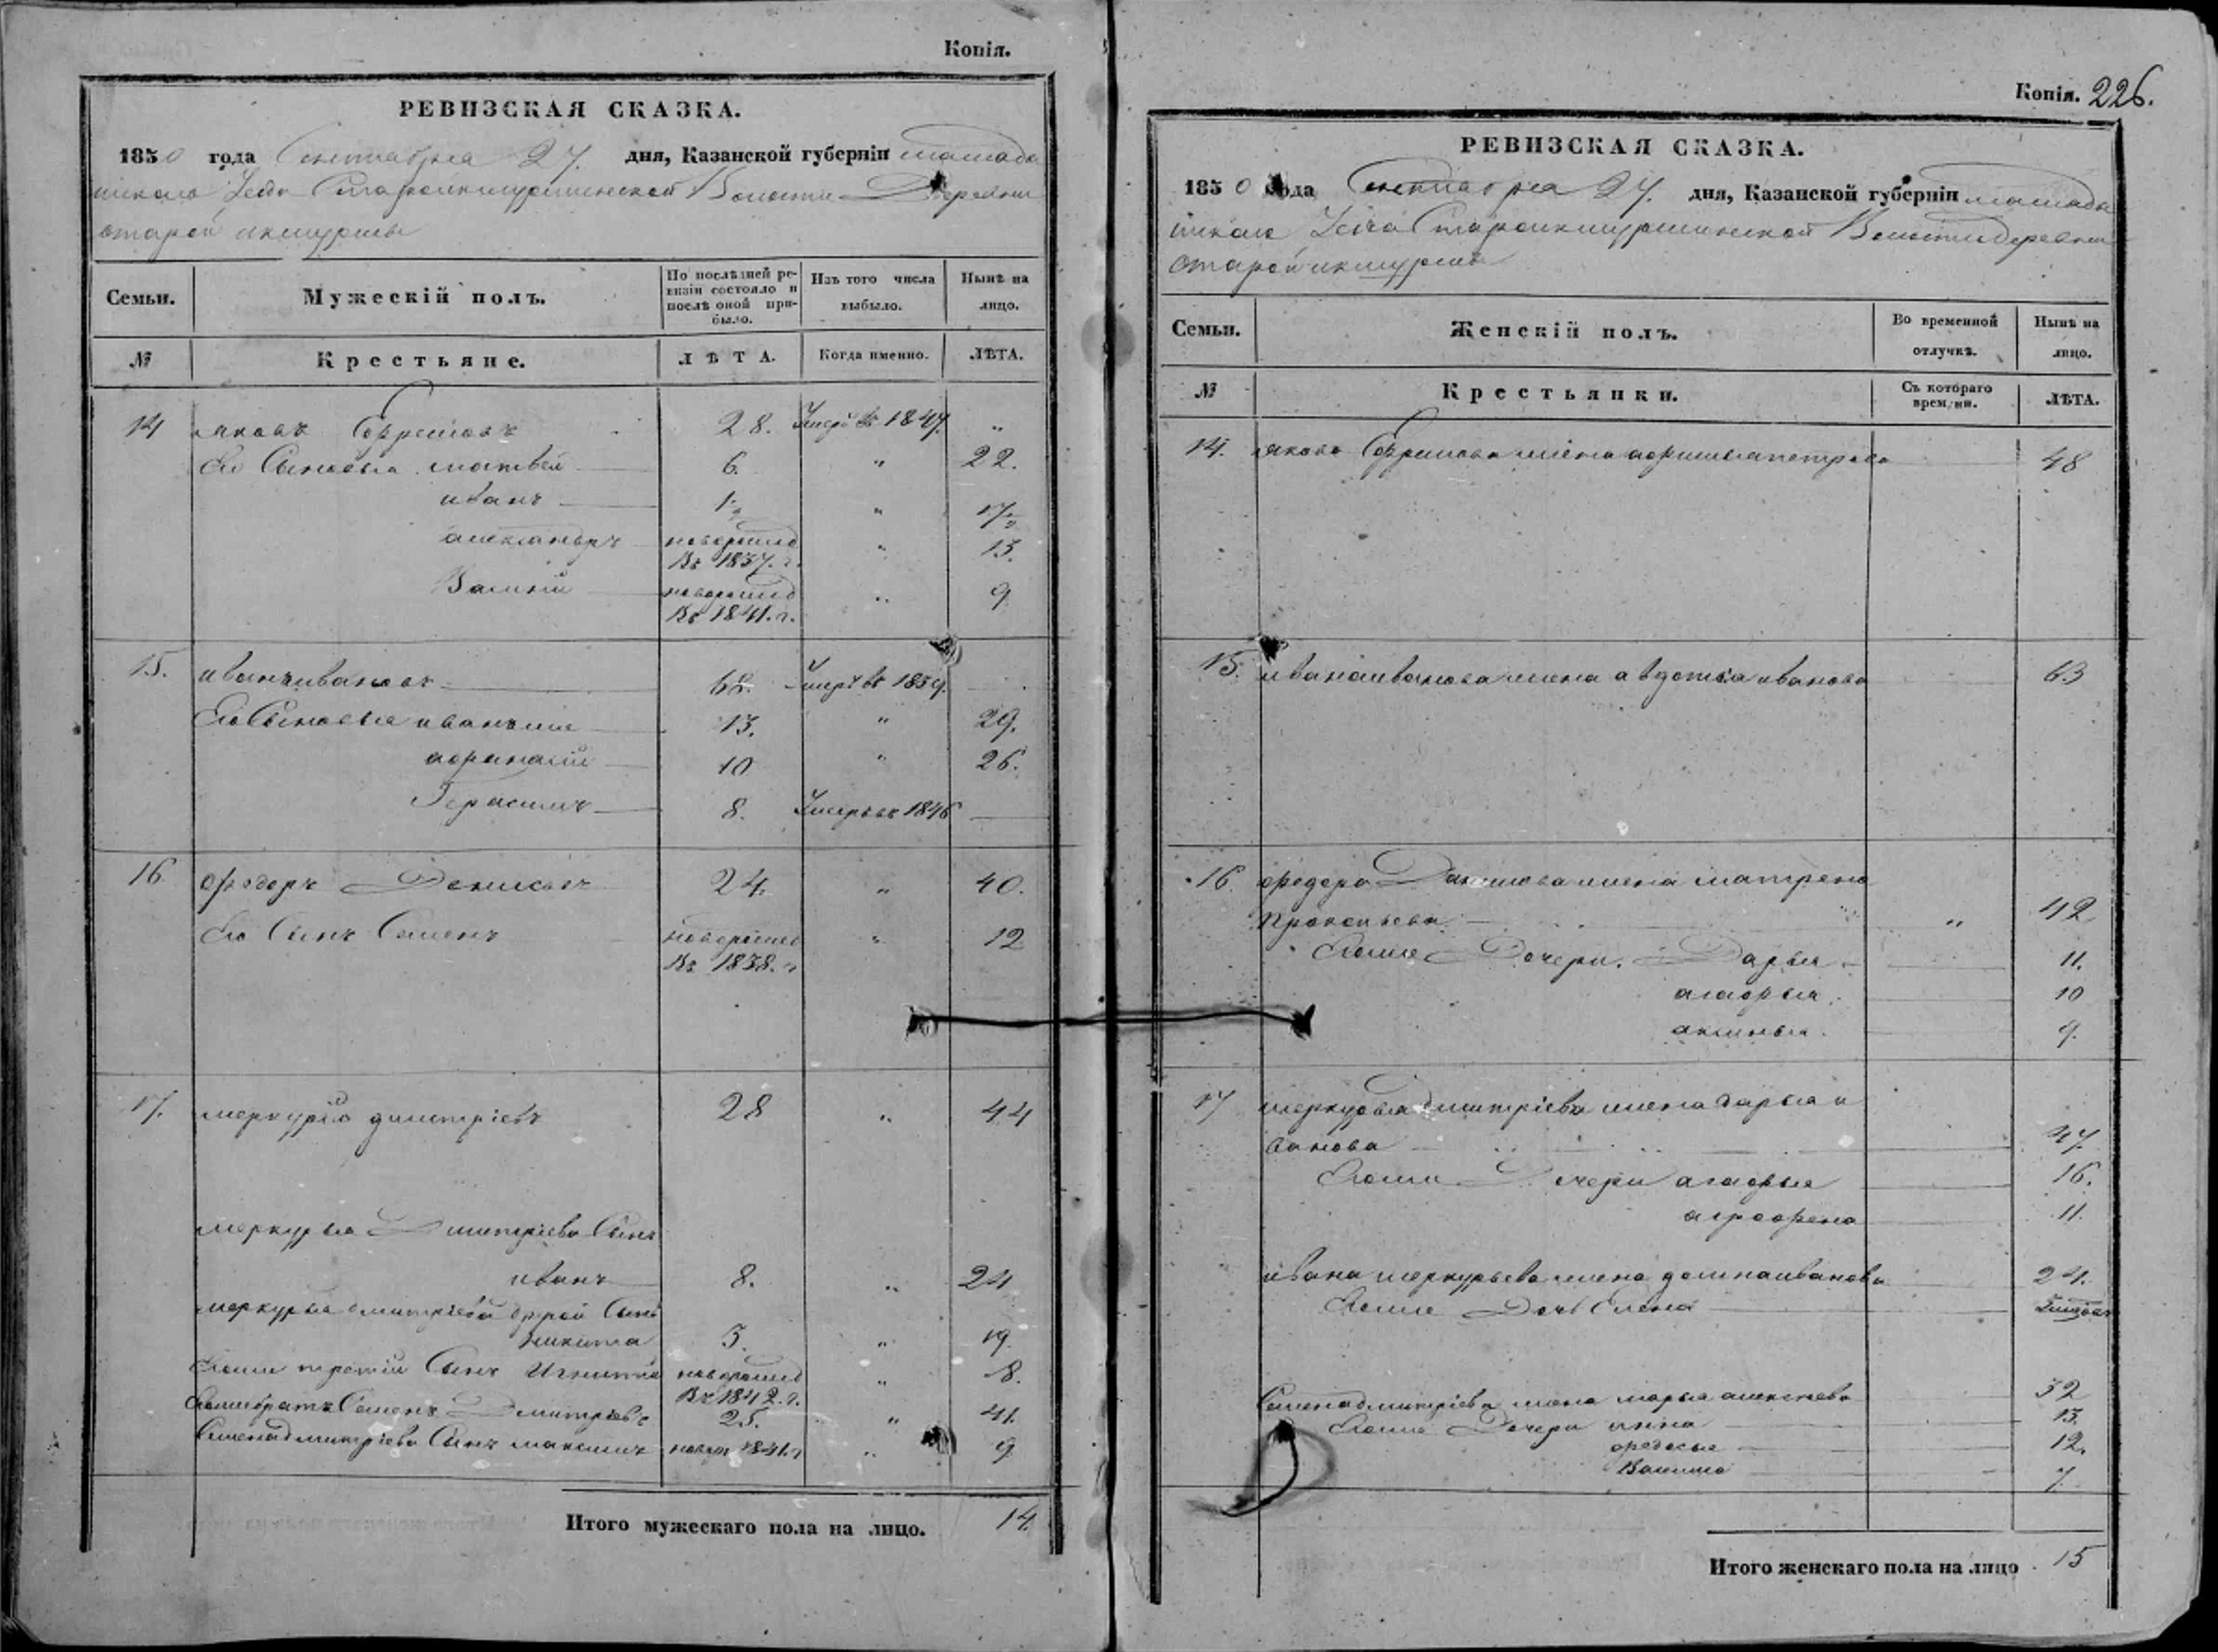 Копія.
РЕВИЗСКАЯ СКАЗКА.
1850 года Сентября 27. дня, Казанской губерніи мамады
шскаго Уезда Староикшурминской Волости Деревни
старой икшурмы
Семьи.
Мужескій полъ.
По послѣдней ре-
визіи состояло и
послѣ оной при-
было.
Изъ того числа
выбыло.
Нынѣ на
лицо.
№
Крестьяне.
ЛѢТА.
Когда именно.
ЛѢТА.
14 яковъ Ефремовъ 28. Умеръ въ 1847. "
Его Сыновья матвей 6. " 22.
иванъ 1½ " 17½
александръ новорожд " 13.
Въ 1837. г.
Василій новорожд " 9
Въ 1841. г.
15. иванъ ивановъ 68. Умеръ въ 1839.
Его Сыновья иванъ же 13. " 29.
афанасій 10 " 26.
Герасимъ 8. Умеръ въ 1846
16 федоръ Денисовъ 24. " 40.
Его Сынъ Семенъ новорожд " 12
Въ 1838. г
17. меркурій димитріевъ 28 " 44
меркурья Дмитріева Сынъ
иванъ 8. " 24
меркурья дмитріева другой Сынъ
никита 3. " 19
Его же третій Сынъ новорожд " 8.
Въ 1842. г.
Его же братъ Семенъ Дмитріевъ 25. " 41.
Семена дмитріева Сынъ максимъ новор 1841. г " 9
Итого мужескаго пола на лицо. 14.
Копія. 226.
РЕВИЗСКАЯ СКАЗКА.
1850 года Сентября 27. дня, Казанской губерніи мамады
шскаго Уезда Староикшурминской Волости деревни
старой икшурмы
Семьи.
Женскій полъ.
Во временной
отлучкѣ.
Нынѣ на
лицо.
№
Крестьянки.
Съ котораго
времени.
ЛѢТА.
14. якова Ефремова жена афимья петрова 48
15. ивана иванова жена авдотья иванова 63
16. федора Данилова жена матрена
Прокопьева " 42
Его же Дочери. Дарья 11.
агафья 10
аксинья 9.
17 меркурья дмитріева жена дарья и
ванова 47.
Его же Дочери агафья 16.
аграфена 11.
ивана меркурьева жена домна иванова 24.
Его же Дочь Елена
Семена дмитріева жена марья алексеева 32
Его же Дочери анна 13.
федосья 12.
7.
Итого женскаго пола на лицо 15